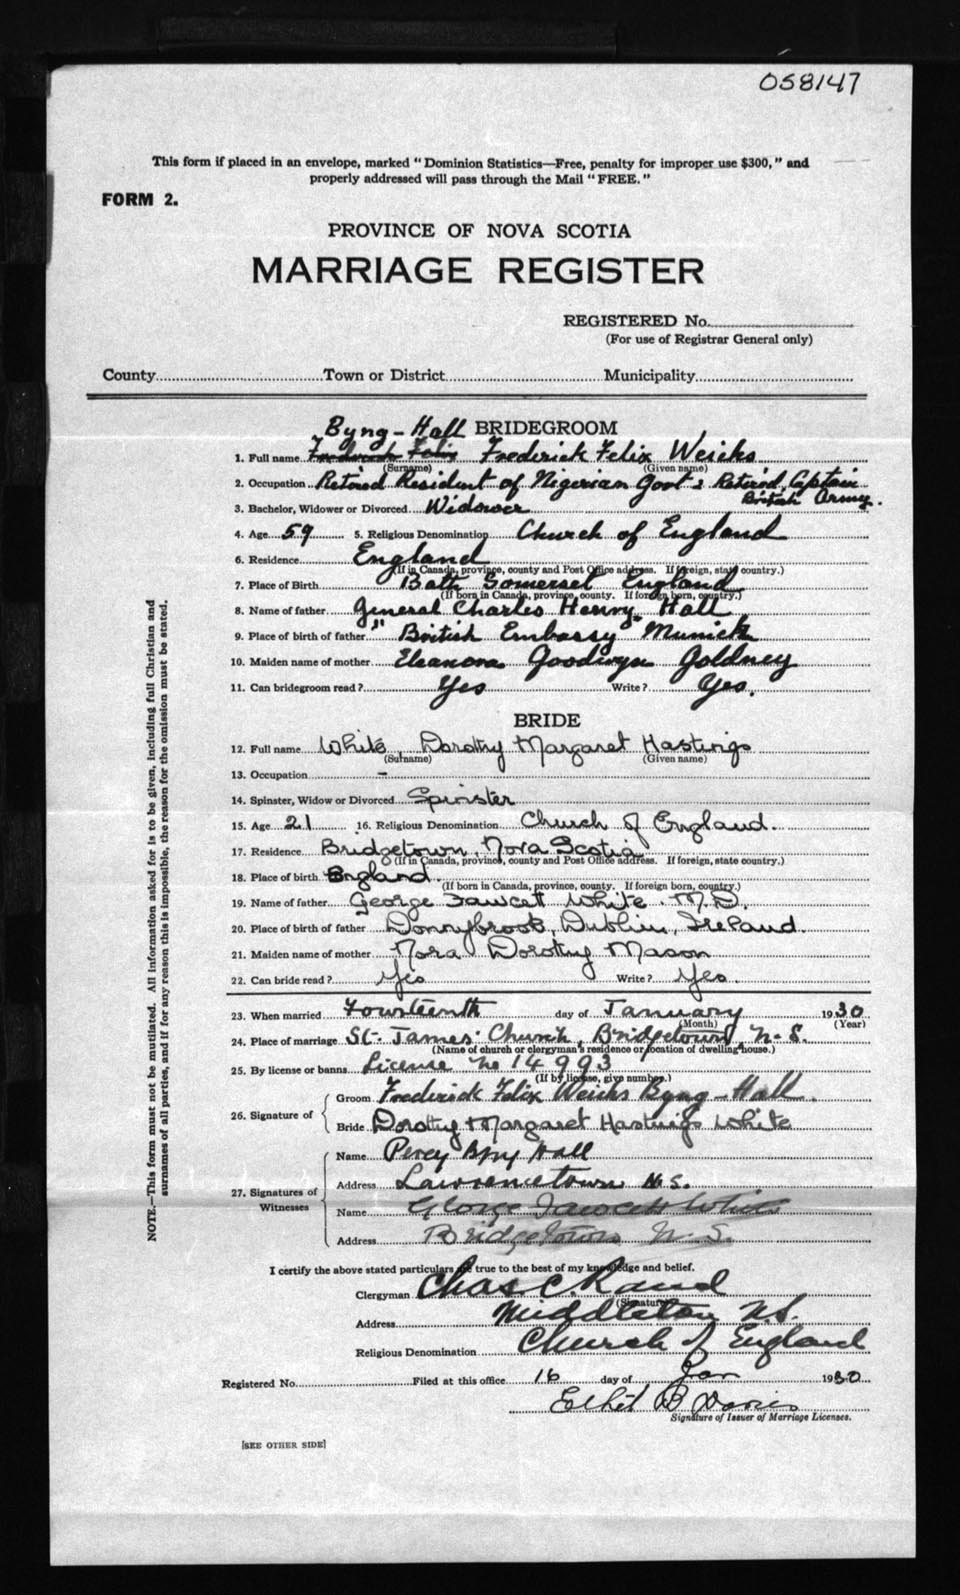 058147
This form if placed in an envelope, marked "Dominion Statistics—Free, penalty for improper use $300," and
properly addressed will pass through the Mail "FREE."
FORM 2.
PROVINCE OF NOVA SCOTIA
MARRIAGE REGISTER
REGISTERED No.
(For use of Registrar General only)
County Town or District Municipality
Byng-Hall BRIDEGROOM
1. Full name Frederick Felix Frederick Felix Weicks
(Surname) (Given name)
2. Occupation Retired Resident of Nigerian Govt & Retired Captain
British Army.
3. Bachelor, Widower or Divorced Widower
4. Age 59 5. Religious Denomination Church of England
6. Residence England
(If in Canada, province, county and Post Office address. If foreign, state country.)
7. Place of Birth Bath Somerset England
(If born in Canada, province, county. If foreign born, country.)
8. Name of father General Charles Henry Hall
9. Place of birth of father "British Embassy" Munich
10. Maiden name of mother Eleanora Goodwyn Goldney
11. Can bridegroom read? Yes Write? Yes.
BRIDE
12. Full name White, Dorothy Margaret Hastings
(Surname) (Given name)
13. Occupation -
14. Spinster, Widow or Divorced Spinster
15. Age 21 16. Religious Denomination Church of England.
17. Residence Bridgetown, Nova Scotia
(If in Canada, province, county and Post Office address. If foreign, state country.)
18. Place of birth England.
(If born in Canada, province, county. If foreign born, country.)
19. Name of father George Fawcet White. M.D.
20. Place of birth of father Donnybrook, Dublin, Ireland.
21. Maiden name of mother Nora Dorothy Mason
22. Can bride read? Yes Write? Yes.
23. When married Fourteenth day of January 1930
(Month) (Year)
24. Place of marriage St. James' Church, Bridgetown, N.S.
(Name of church or clergyman's residence or location of dwelling house.)
25. By license or banns License No 14993
(If by license, give number.)
26. Signature of
Groom Frederick Felix Weicks Byng-Hall.
Bride Dorothy Margaret Hastings White
27. Signatures of Witnesses
Name Percy Byng Hall
Address Lawrencetown N.S.
Name George Fawcett White
Address Bridgetown N.S.
I certify the above stated particulars are true to the best of my knowledge and belief.
Clergyman Chas. C. Rand
(Signature)
Address Middleton N.S.
Religious Denomination Church of England
Registered No. Filed at this office 16 day of Jan 1930
Ethel B Davies
Signature of Issuer of Marriage Licenses.
[SEE OTHER SIDE]
NOTE.—This form must not be mutilated. All information asked for is to be given, including full Christian and
surnames of all parties, and if for any reason this is impossible, the reason for the omission must be stated.